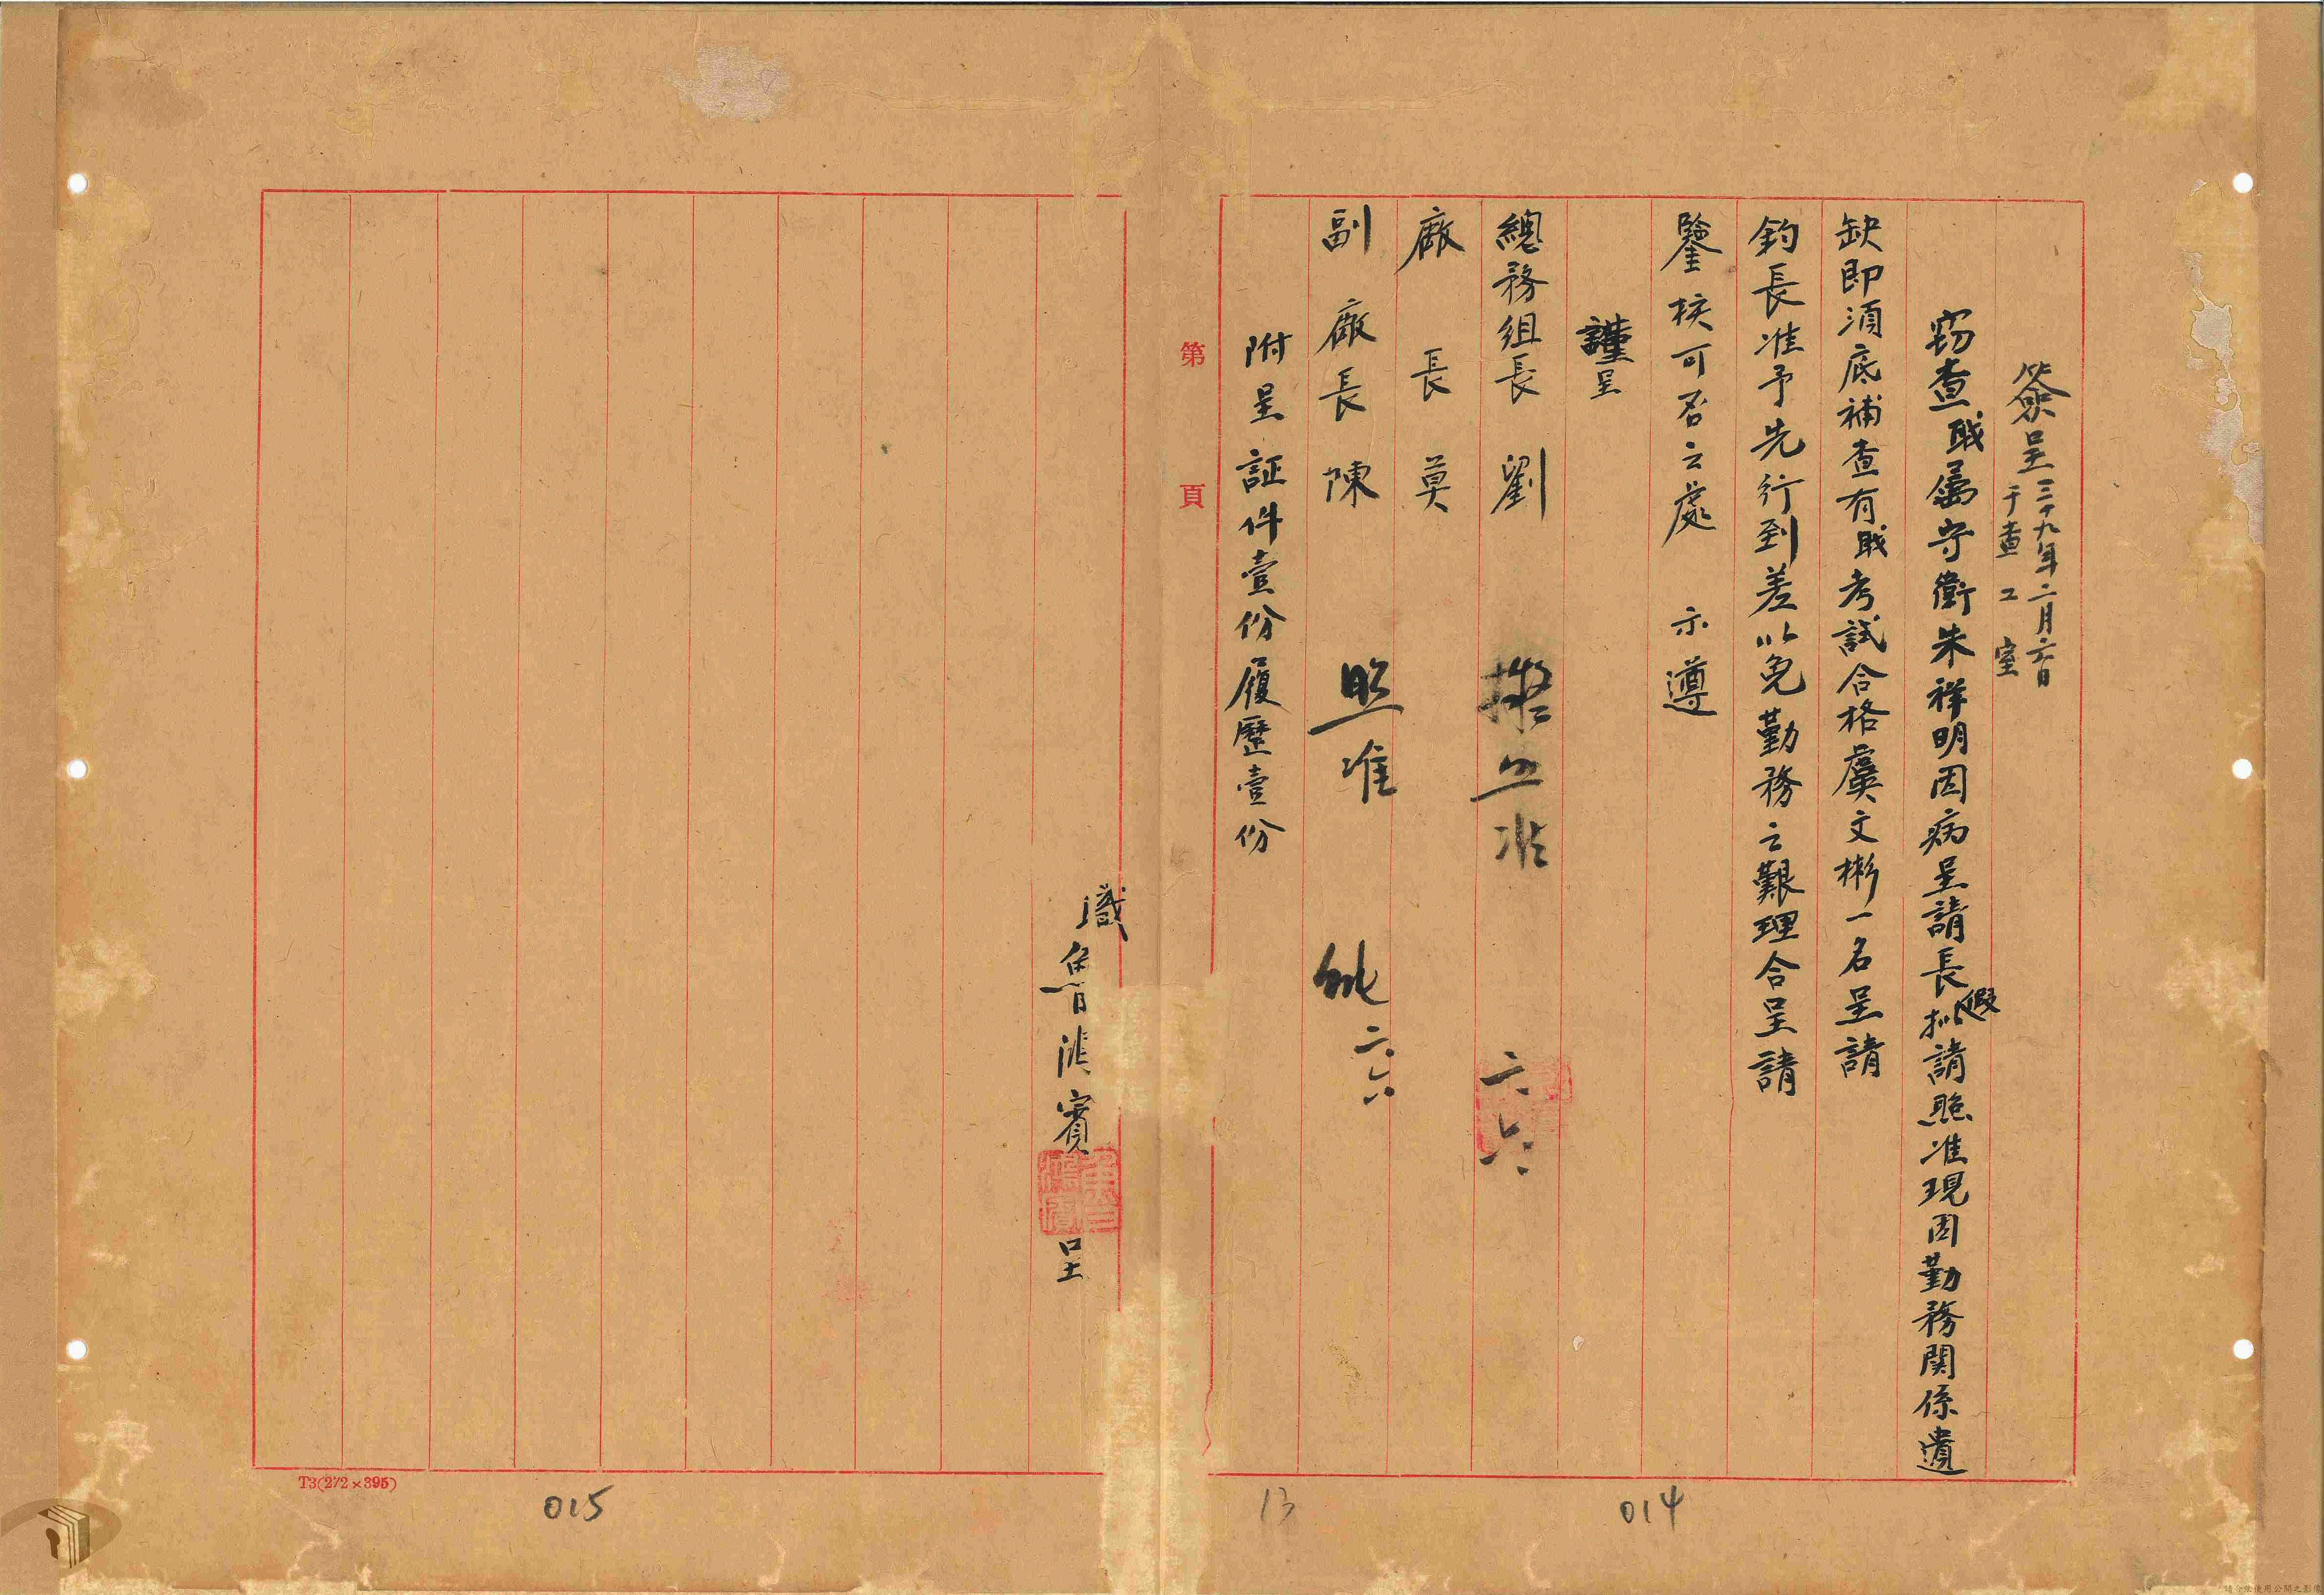 簽呈 三十九年二月六日
于查工室
窃查戝屬守衛朱祥明因病呈請長假擬請照准現因勤務関係遺
缺即須底補查有戝考試合格虞文彬一名呈請
鈞長准予先行到差以免勤務之艱理合呈請
鑒核可否之處 示遵
謹呈
總務組長 劉 擬照准 二.六.
廠長 莫
副廠長 陳 照准 二.六
附呈証件壹份履歷壹份
第 頁
職魯鴻賓 呈
T3(272×395)
015
13
014